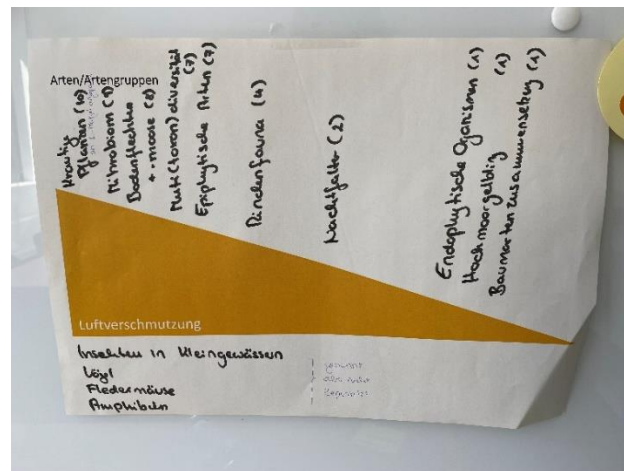 Arten/Artengruppen
Krautige
Pflanzen (10)
Mikrobiom (9)
Bodenflechten
+ -moose (8)
Multi(taxon)diversität
(7)
Epiphytische Arten (7)
Rindenfauna (4)
Nachtfalter (2)
Endophytische Organismen (1)
Hochmoorgelbling (1)
Baumartenzusammensetzung (1)
Luftverschmutzung
Insekten in Kleingewässern
Vögel
Fledermäuse
Amphibien
genannt